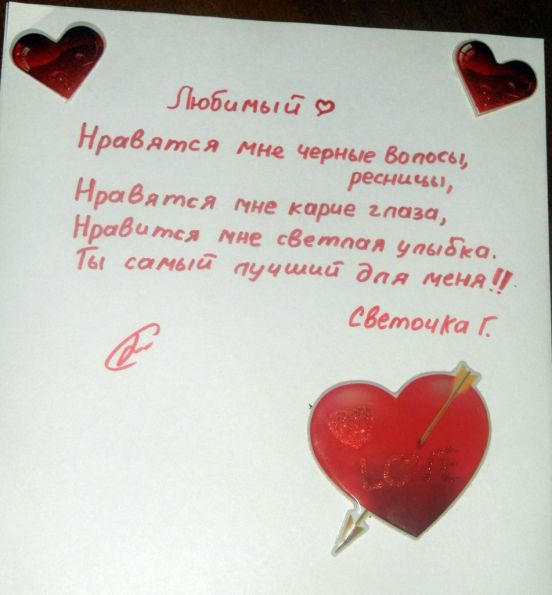 Любимый ♡
Нравятся мне черные волосы,
ресницы,
Нравятся мне карие глаза,
Нравится мне светлая улыбка.
Ты самый лучший для меня!!
Светочка Г.
LOVE